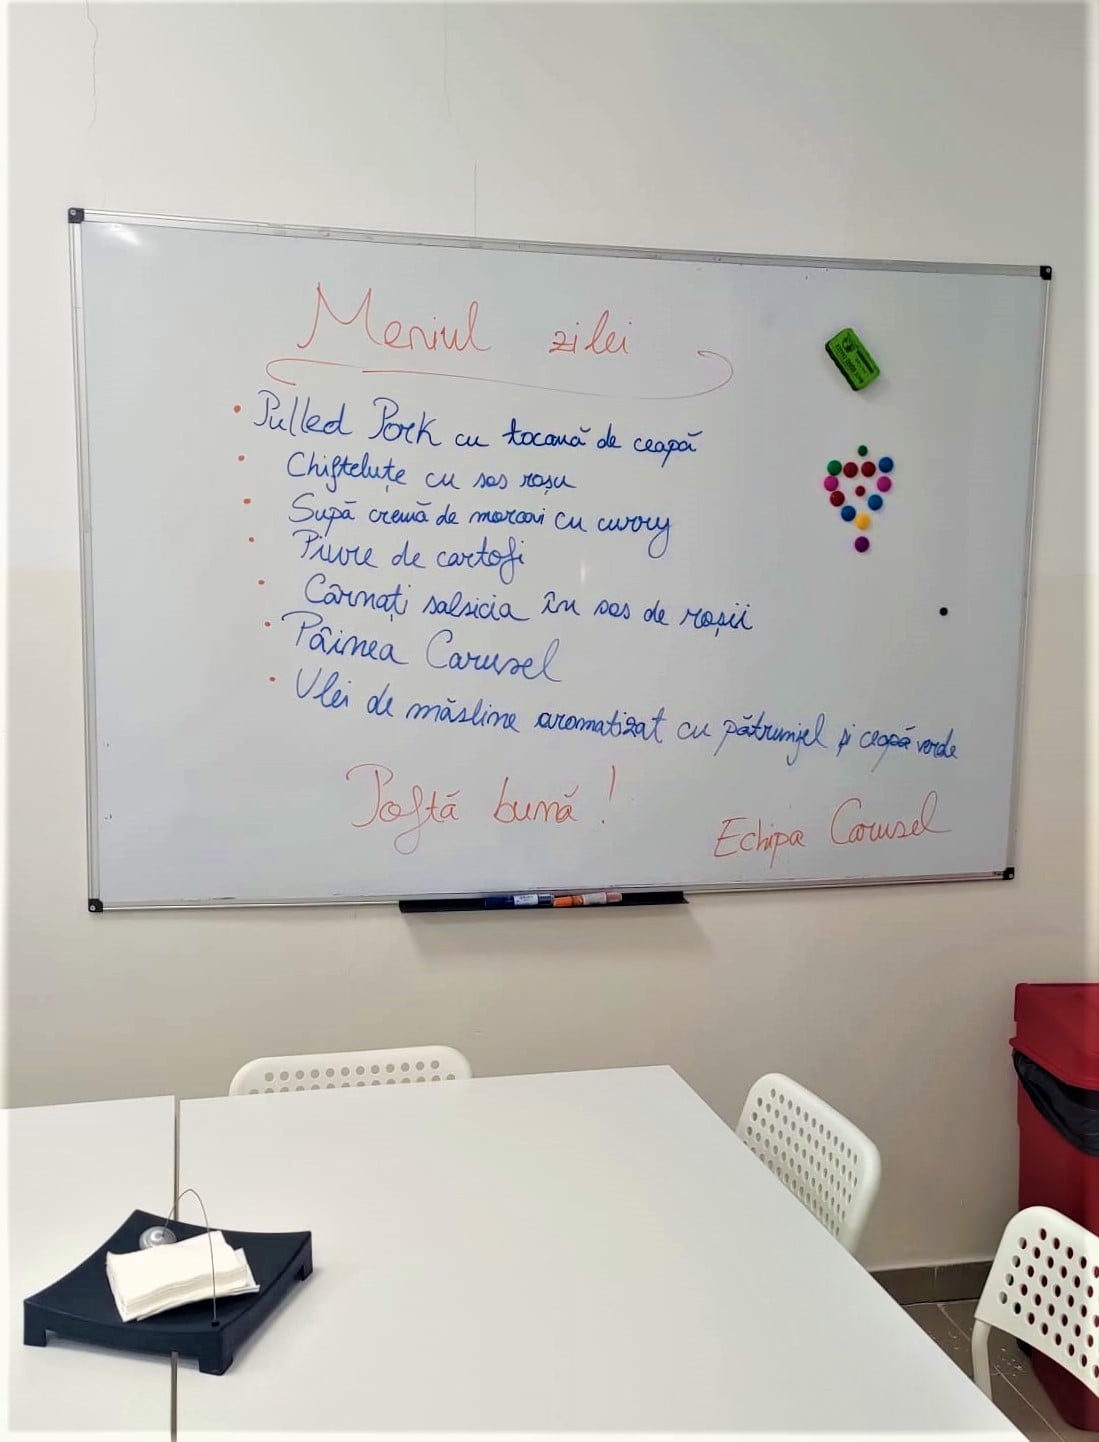 Meniul zilei
• Pulled Pork cu tocană de ceapă
• Chifteluțe cu sos roșu
• Supă cremă de morcovi cu curry
• Piure de cartofi
• Cârnați salsicia în sos de roșii
• Pâinea Carusel
• Ulei de măsline aromatizat cu pătrunjel și ceapă verde
Poftă bună!
Echipa Carusel